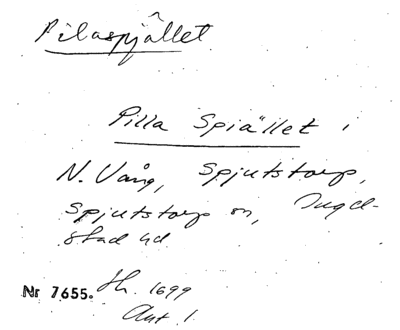 Pilaspjället
Pilla Spiället i
N. Vång, Spjutstorp,
Spjutstorp sn, Ingel-
stad hd
Nr 7655. Sk. 1699
Akt 1.